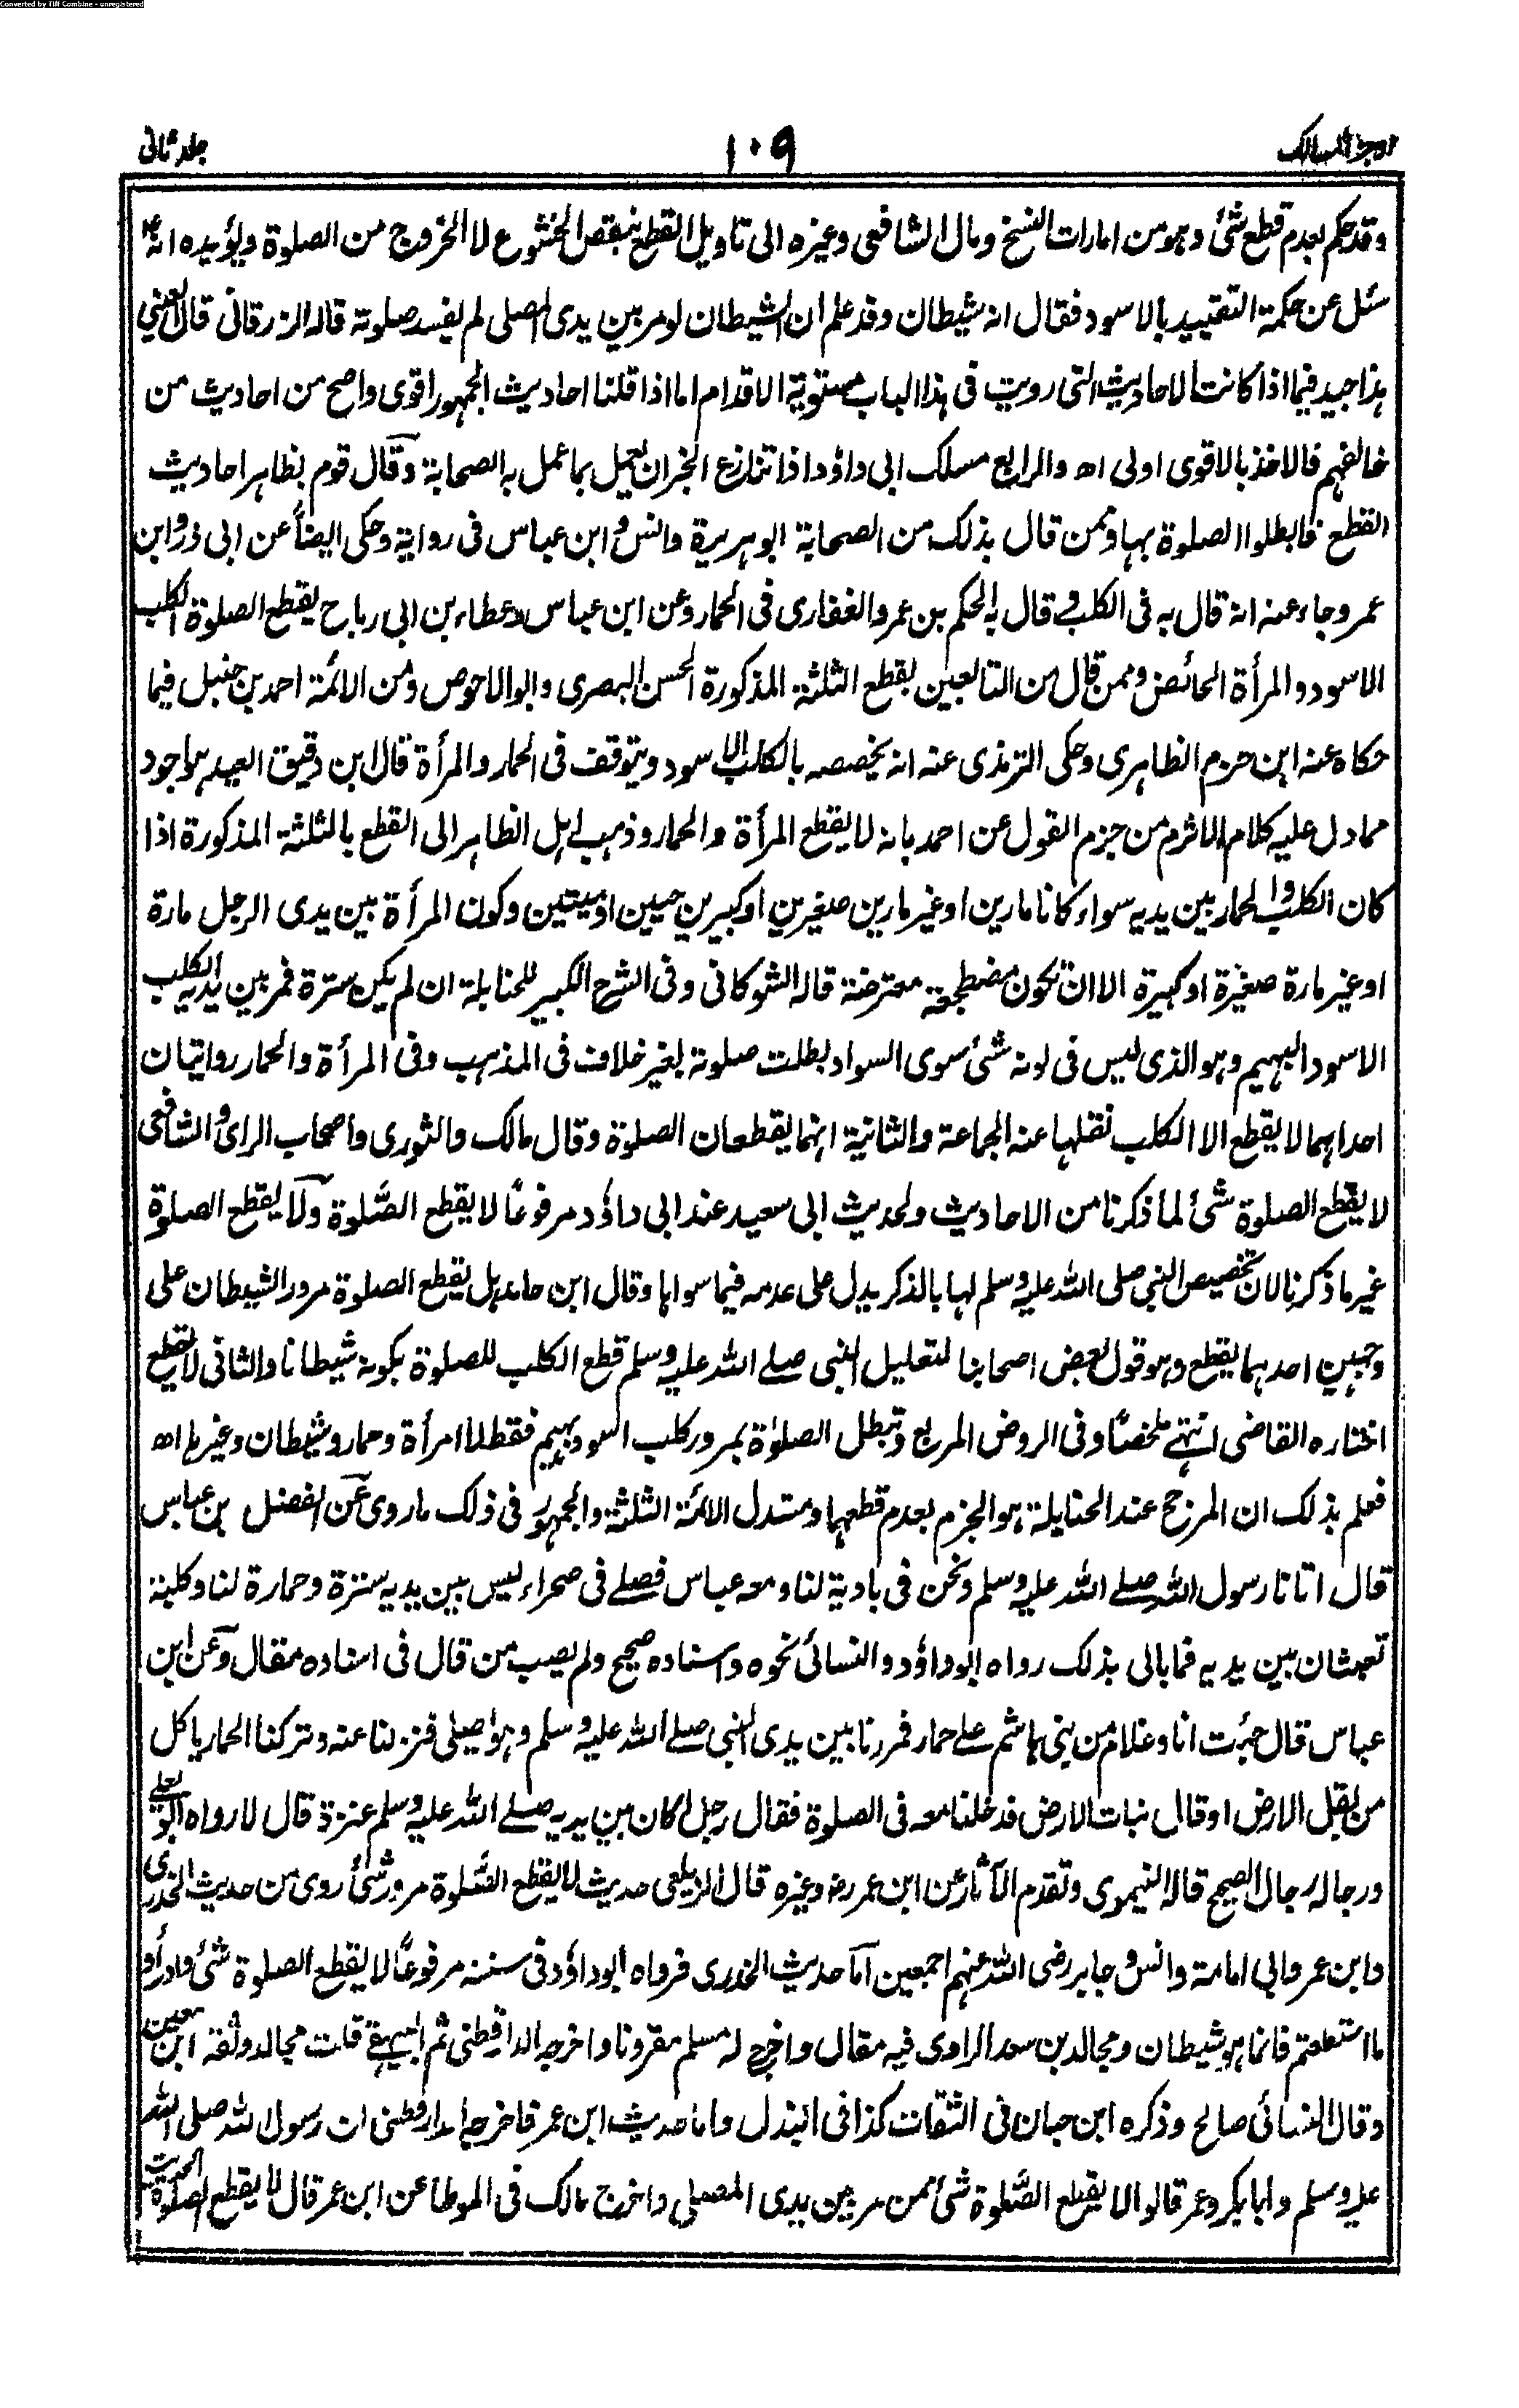 Converted by Tiff Combine - unregistered
اوجز المسالک ١٠٩ جلد ثانی
وقد حکم بعدم قطع شئ وہو من امارات النسخ ومال الشافعی وغیرہ الی تاویل القطع بنقص الخشوع لا الخروج من الصلوة ویؤیدہ انہ
سئل عن حکمة التقیید بالاسود فقال انہ شیطان وقد علم ان الشیطان لو مر بین یدی المصلی لم یفسد صلوتہ قالہ الزرقانی قال العینی
ہذا جید فیما اذا کانت الاحادیث التی رویت فی ہذا الباب مستویة الاقدام اما اذا قلنا احادیث الجمہور اقوی واصح من احادیث من
خالفہم فالاخذ بالاقوی اولی اھ والرابع مسلک ابی داؤد اذا تنازع الخبران یعمل بما عمل بہ الصحابة وقال قوم بظاہر احادیث
القطع فابطلوا الصلوة بہا وممن قال بذلک من الصحابة ابو ہریرة وانس وابن عباس فی روایة وحکی ایضاً عن ابی ذر وابن
عمر وجاء عنہ انہ قال بہ فی الکلب وقال بہ الحکم بن عمرو الغفاری فی الحمار وعن ابن عباس وعطاء بن ابی رباح یقطع الصلوة الکلب
الاسود والمرأة الحائض وممن قال من التابعین بقطع الثلثة المذکورة الحسن البصری وابو الاحوص ومن الائمة احمد بن حنبل فیما
حکاہ عنہ ابن حزم الظاہری وحکی الترمذی عنہ انہ یخصصہ بالکلب الاسود ویتوقف فی الحمار والمرأة قال ابن دقیق العید ہو اجود
مما دل علیہ کلام الاثرم من جزم القول عن احمد بانہ لا یقطع المرأة والحمار وذہب اہل الظاہر الی القطع بالثلثة المذکورة اذا
کان الکلب والحمار بین یدیہ سواء کانا مارین او غیر مارین صغیرین او کبیرین حیین او میتین وکون المرأة بین یدی الرجل مارة
او غیر مارة صغیرة او کبیرة الا ان تکون مضطجعة معترضة قالہ الشوکانی وفی الشرح الکبیر للحنابلة ان لم یکن سترة فمر بین یدیہ الکلب
الاسود البہیم وہو الذی لیس فی لونہ شئ سوی السواد بطلت صلوتہ بغیر خلاف فی المذہب وفی المرأة والحمار روایتان
احداہما لا یقطع الا الکلب نقلہا عنہ الجماعة والثانیة انہما یقطعان الصلوة وقال مالک والثوری واصحاب الرای والشافعی
لا یقطع الصلوة شئ لما ذکرنا من الاحادیث ولحدیث ابی سعید عند ابی داؤد مرفوعاً لا یقطع الصلوة ولا یقطع الصلوة
غیر ما ذکرنا لان تخصیص النبی صلی اللہ علیہ وسلم لہا بالذکر یدل علی عدمہ فیما سواہا وقال ابن حامد ہل یقطع الصلوة مرور الشیطان علی
وجہین احدہما یقطع وہو قول بعض اصحابنا لتعلیل النبی صلے اللہ علیہ وسلم قطع الکلب للصلوة بکونہ شیطانا والثانی لا یقطع
اختارہ القاضی انتہے ملخصاً وفی الروض المربع وتبطل الصلوٰة بمرور کلب اسود بہیم فقط لا امرأة وحمار وشیطان وغیرہا اھ
فعلم بذلک ان المرجح عند الحنابلة ہو الجزم بعدم قطعہما ومستدل الائمة الثلثة والجمہور فی ذلک ما روی عن الفضل بن عباس
قال اتانا رسول اللہ صلے اللہ علیہ وسلم ونحن فی بادیة لنا ومعہ عباس فصلے فی صحراء لیس بین یدیہ سترة وحمارة لنا وکلبة
تعبثان بین یدیہ فما بالی بذلک رواہ ابوداؤد والنسائی نحوہ واسنادہ صحیح ولم یصب من قال فی اسنادہ مقال وعن ابن
عباس قال جئت انا وغلام من بنی ہاشم علے حمار فمررنا بین یدی النبی صلے اللہ علیہ وسلم وہو یصلی فنزلنا عنہ وترکنا الحمار یاکل
من بقل الارض او قال نبات الارض فدخلنا معہ فی الصلوة فقال رجل اکان بین یدیہ صلے اللہ علیہ وسلم عنزة قال لا رواہ ابو یعلی
ورجالہ رجال الصحیح قالہ النیموی وتقدم الآثار عن ابن عمر رض وغیرہ قال الزیلعی حدیث لا یقطع الصلوة مرور شئ روی من حدیث الخدری
وابن عمر وابی امامة وانس وجابر رضی اللہ عنہم اجمعین اما حدیث الخدری فرواہ ابوداؤد فی سننہ مرفوعاً لا یقطع الصلوة شئ وادرأوا
ما استطعتم فانما ہو شیطان ومجالد بن سعد الراوی فیہ مقال واخرج لہ مسلم مقرونا واخرجہ الدارقطنی ثم البیہقے قلت مجالد وثقہ ابن معین
وقال النسائی صالح وذکرہ ابن حبان فی الثقات کذا فی البذل واما حدیث ابن عمر فاخرجہ الدارقطنی ان رسول اللہ صلی اللہ
علیہ وسلم وابابکر وعمر قالوا لا یقطع الصلوة شئ ممن مر بین یدی المصلی واخرج مالک فی الموطا عن ابن عمر قال لا یقطع الصلوة الحدیث